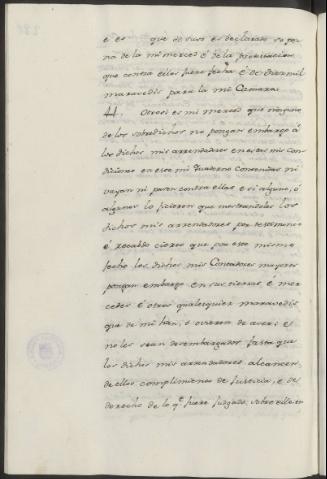 é es que de suso es declarado so pe
na de la mi merced é de la protestacion
que contra ellos fuere fecha é de diez mil
maravedis para la mi Camara.
44. Otrosi es mi merced que ninguno
de los sobredichos no pongan embargo á
los dichos mis arrendadores en estas mis con
diciones en este mi Quaderno contenidas ni
vayan ni pasen contra ellas e si alguno, ó
algunos lo ficieren que mostrandolo los
dichos mis arrendadores por testimonio
é recabdo cierto que por este mismo
fecho los dichos mis Contadores mayores
pongan embargo en sus tierras é mer
cedes é otros qualesquier maravedis
que de mi han, é ovieren de aver: é
no les sean desembargados fasta que
los dichos mis arrendadores alcancen
de ellos complimiento de justicia, é de
derecho de lo qe. fuere juzgado. sobre ello